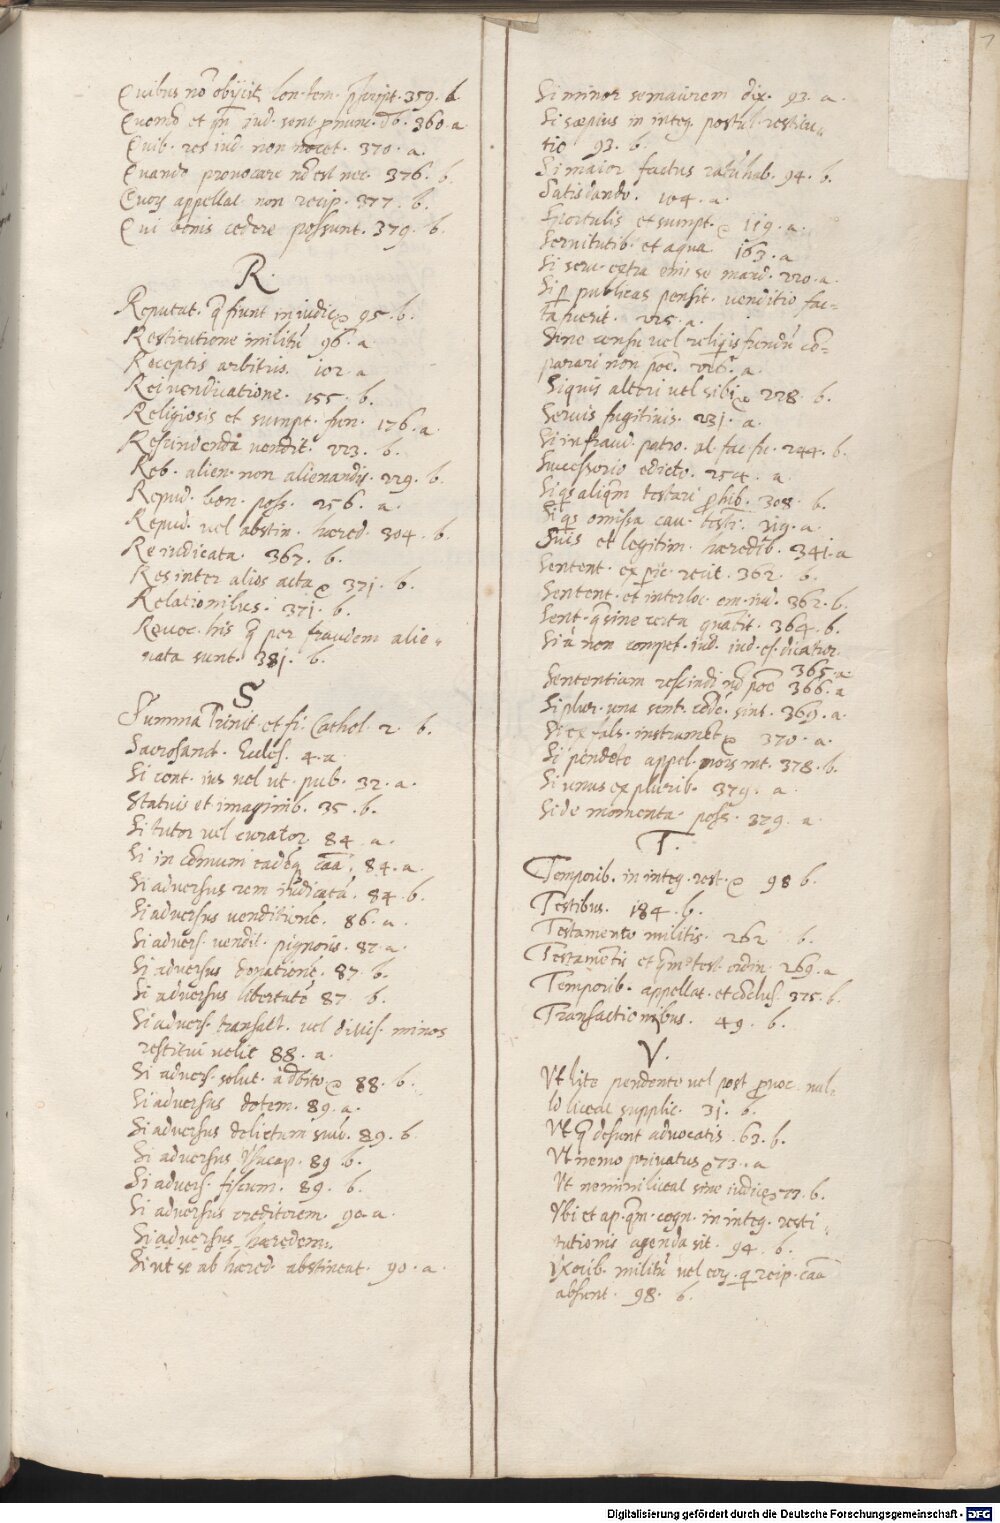 Quibus nō obijcit lon. tem. pscript. 359. b.
Quomō et qn iud. sent pnunc. db. 360. a
Quib. res iud. non nocet. 370. a.
Quando provocare nō est nec. 376. b.
Quorꝫ appellat non recip. 377. b.
Qui bonis cedere possunt. 379. b.
R.
Reputat. q̄ fiunt in iudic 95. b.
Restitutione militū 96. a
Receptis arbitris. 102. a
Rei vendicatione. 155. b.
Religiosis et sumpt. fun. 176. a.
Rescindenda vendit. 223. b.
Reb. alien. non alienandis. 229. b.
Repud. bon. poss. 256. a.
Repud. vel abstin. hæred. 304. b.
Re iudicata. 367. b.
Res inter alios acta 371. b.
Relationibus. 371. b.
Revoc. his q̄ per fraudem alie-
nata sunt. 381. b.
S
Summa Trinit et fi. Cathol. 2. b.
Sacrosanct. Eccles. 4. a
Si cont. ius vel ut. pub. 32. a.
Statuis et imaginib. 35. b.
Si tutor vel curator 84. a.
Si in cōmuni eadēq caā. 84. a.
Si adversus rem iudicatā. 84. b.
Si adversus venditionē. 86. a.
Si advers. vendit. pignoris. 87. a.
Si adversus donationē. 87. b.
Si adversus libertatē 87. b.
Si advers. transact. vel divis. minor
restitui velit 88. a.
Si advers. solut. a dbito 88. b.
Si adversus dotem. 89. a.
Si adversus delictum suū. 89. b.
Si adversus Usucap. 89 b.
Si advers. fiscum. 89. b.
Si adversus creditorem. 90. a.
Si adversus hæredem.
Si ut se ab hæred. abstineat. 90. a.
Si minor se maiorem dix. 93. a.
Si sæpius in integ. postul. restitu-
tio 93. b.
Si maior factus ratū hab. 94. b.
Satisdando. 104. a.
Sportulis et sumpt. 119. a.
Servitutib. et aqua 163. a
Si serv. extra emi se mand. 220. a.
Si p publicas pensit. venditio fac-
ta fuerit. 225. a.
Sine censu vel reliquis fundū cō-
parari non poē. 226. a.
Si quis alteri vel sibi 228. b.
Servis fugitivis. 231. a.
Si in fraud. patro. al. fac. fu. 244. b.
Successorio edicto. 254. a.
Si qs aliqm testari phib. 308. b.
Si qs omissa cau. testi. 319. a.
Suis et legitim. hæredib. 341. a
Sentent. ex pic. recit. 362. b.
Sentent. et interloc. om. iud. 362. b.
Sent. q sine certa quātit. 364. b.
Si a non compet. iud. iud. es. dicatur
365. a.
Sententiam rescindi nō poē 366. a
Si plur. una sent. 369. a.
Si ex fals. instrument 370. a.
Si pendēte appel. mors int. 378. b.
Si unus ex plurib. 379. a
Si de momenta. poss. 379. a
T.
Temporib. in integ. rest. 98 b.
Testibus. 184. b.
Testamento militis. 262 b.
Testamētis et qm test. ordin. 269. a
Temporib. appellat. et cōclus. 375. b.
Transactionibus. 49. b.
V.
Ut lite pendente vel post pvoc. nul-
li liceat supplic. 31. b.
Ut q̄ desunt advocatis. 63. b.
Ut nemo privatus 73. a
Ut nemini liceat sine iudic 77. b.
Ubi et ap. qm. cogn. in integ. resti-
tutionis agenda sit. 94. b.
Uxorib. militū vel eorꝫ. q reip. caā
absunt. 98. b.
Digitalisierung gefördert durch die Deutsche Forschungsgemeinschaft - DFG